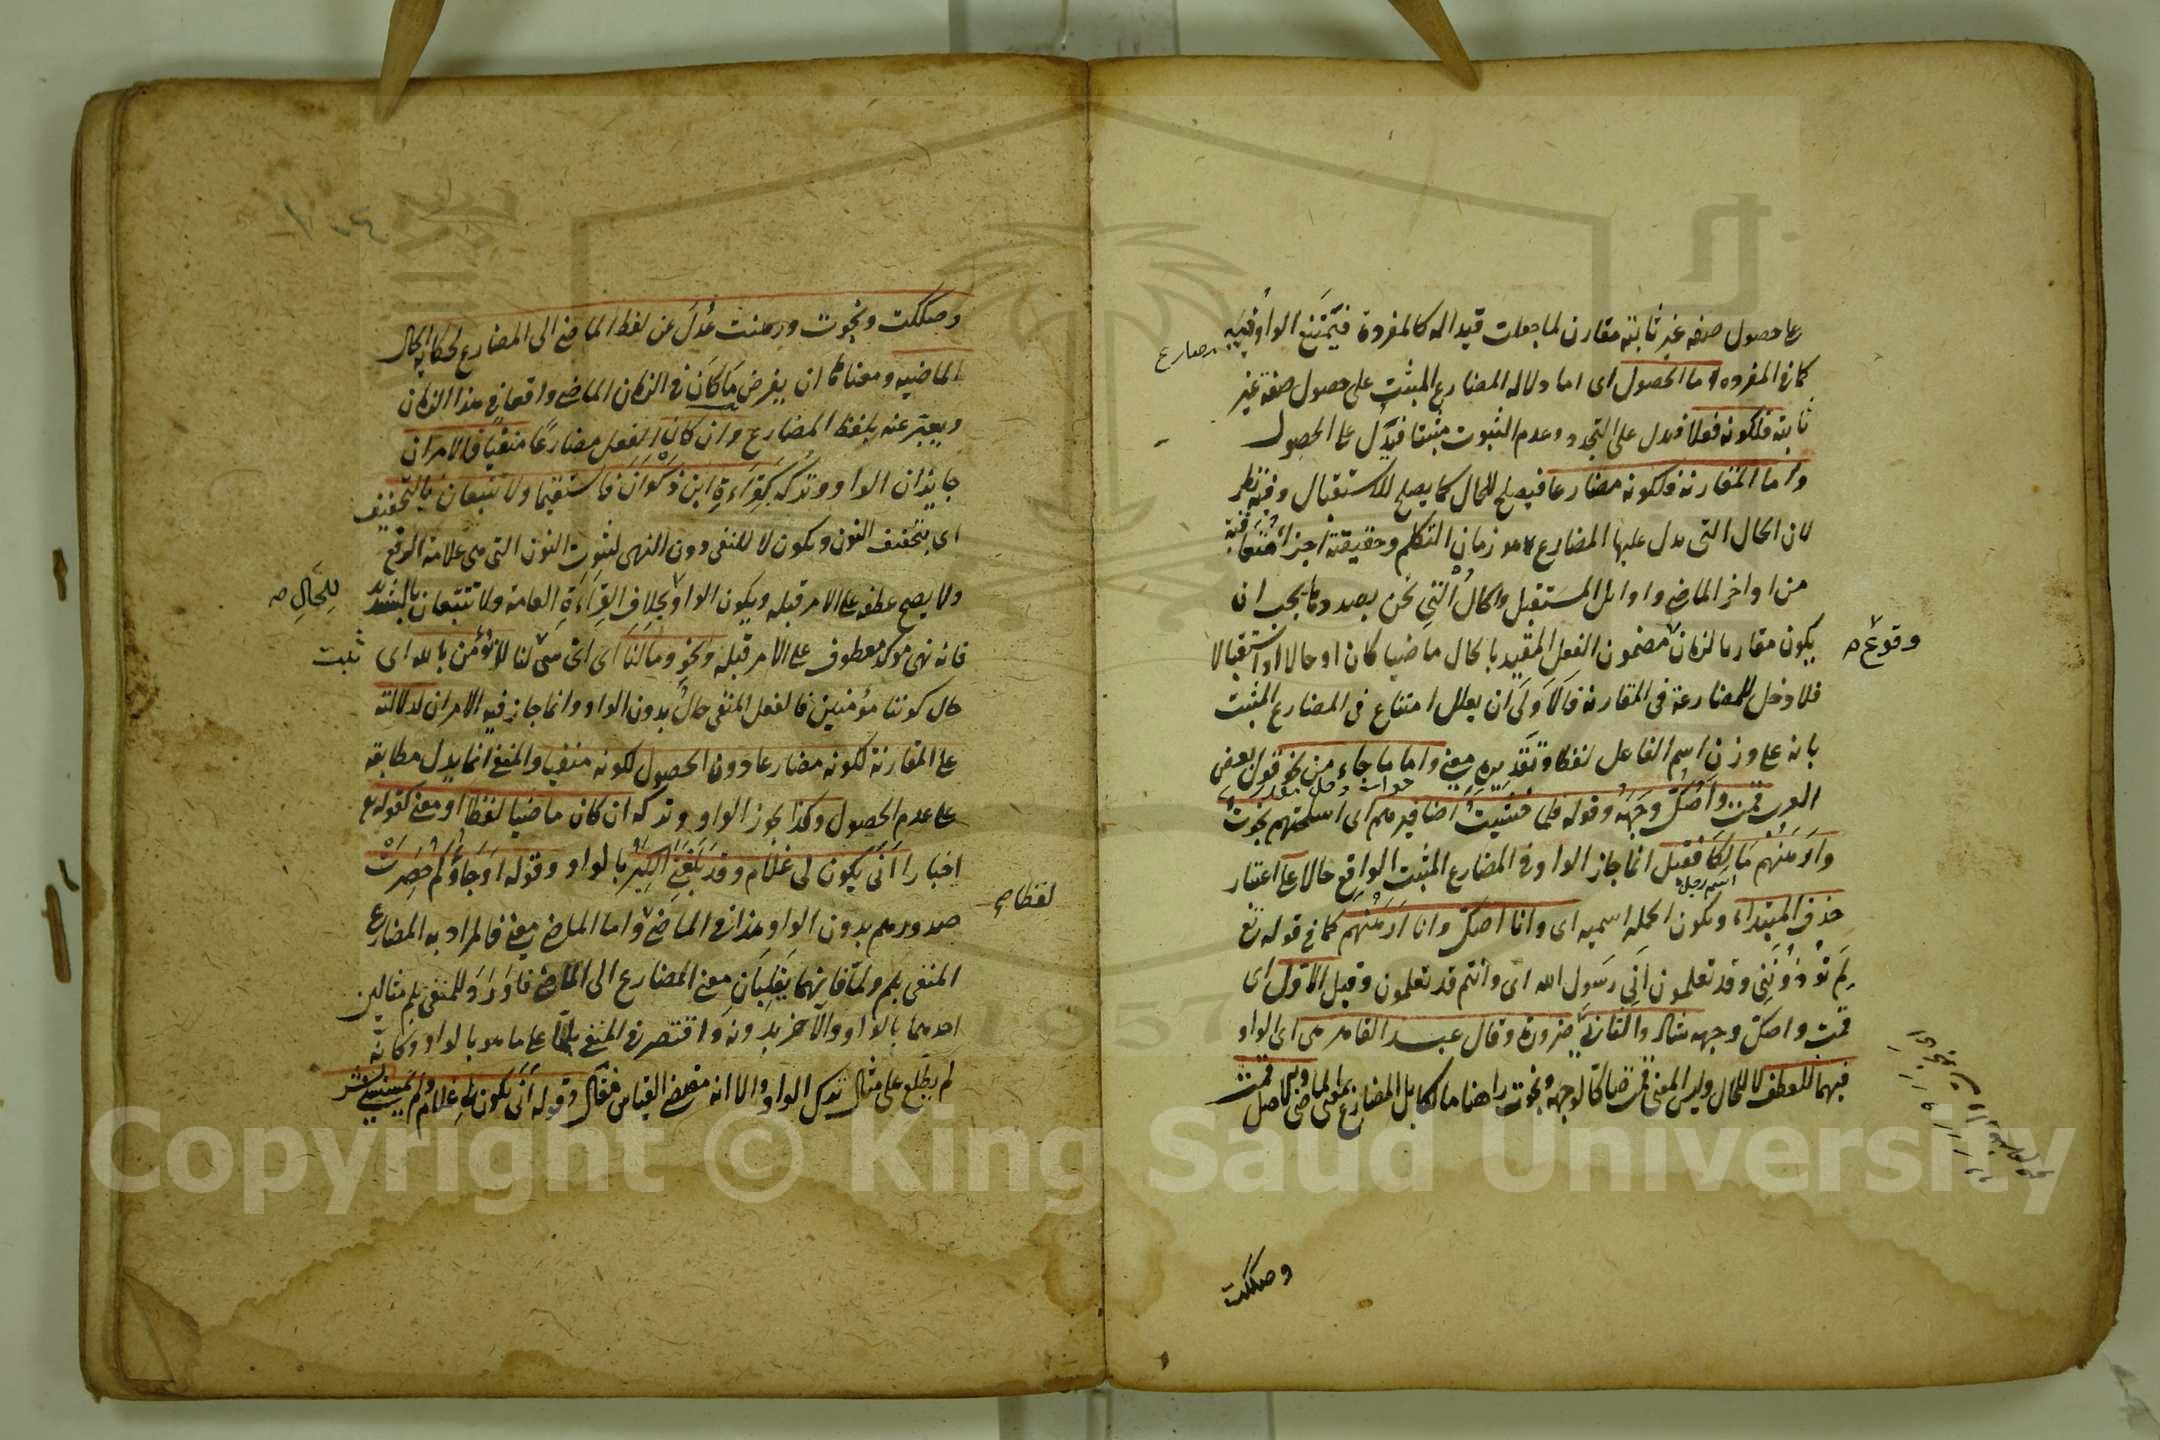 على حصول صفة غير ثابتة مقارن لما جعلت قيدا له كالمفردة فيمتنع الواو فيه
كما في المفردة اما الحصول اى اما دلالة المضارع المثبت على حصول صفة غير
ثابتة فلكونه فعلا فيدل على التجدد وعدم الثبوت مثبتا فيدل على الحصول
واما المقارنة فلكونه مضارعا فيصلح للحال كما يصلح للاستقبال وفيه نظر
لان الحال التى يدل عليها المضارع هو زمان التكلم وحقيقته اجزاء متعاقبة
من اواخر الماضى واوايل المستقبل والحال التى نحن بصددها يجب ان
يكون مقارنا لزمان مضمون الفعل المقيد بالحال ماضيا كان او حالا او استقبالا
فلا دخل للمضارعة فى المقارنة فالاولى ان يعلل امتناع فى المضارع المثبت
بانه على وزن اسم الفاعل لفظا وتقديره معنى واما ما جاء من نحو قول بعض
العرب قمت واصك وجهه وقوله فلما خشيت اظافيرهم اى اسلحتهم نجوت
وارهنهم مالكا فقيل انما جاز الواو فى المضارع المثبت الواقع حالا على اعتبار
حذف المبتداء وتكون الجملة اسمية اى وانا اصك وانا ارهنهم كما فى قوله تع
لم تؤذوننى وقد تعلمون انى رسول الله اى وانتم قد تعلمون وقيل الاول اى
قمت واصك وجهه شاذ والثانى ضرورة وقال عبد القاهر هى اى الواو
فيهما للعطف لا للحال وليس المعنى قمت صاكا لوجهه ونجوت راهنا مالكا بل المضارع بمعنى الماضى والاصل قمت
وصككت
مضارع
وقوع صح
جواب
اسم رجل
وصككت ونجوت ورهنت عدل عن لفظ الماضى الى المضارع لحكاية الحال
الماضية ومعناها ان يفرض ما كان فى الزمان الماضى واقعا فى هذا الزمان
ويعبر عنه بلفظ المضارع وان كان الفعل مضارعا منفيا فالامران
جايزان الواو وتركه كقراءة ابن ذكوان فاستقيما ولا تتبعان بالتخفيف
اى بتخفيف النون ويكون لا للنفى دون النهى لثبوت النون التى هى علامة الرفع
ولا يصح عطفه على الامر قبله ويكون الواو بخلاف القراءة العامة ولا تتبعان بالتشديد
فانه نهى مؤكد معطوف على الامر قبله ونحو وما لنا اى اى شئ لنا لا نؤمن بالله اى
حال كوننا مؤمنين فالفعل المنفى حال بدون الواو وانما جاز فيه الامران لدلالته
على المقارنة لكونه مضارعا دون الحصول لكونه منفيا والمنفى انما يدل مطابقة
على عدم الحصول وكذا يجوز الواو وتركه ان كان ماضيا لفظا او معنى كقوله تع
اخبارا انى يكون لى غلام وقد بلغنى الكبر بالواو وقوله او جاؤكم حصرت
صدورهم بدون الواو هذا فى الماضى واما الماضى معنى فالمراد به المضارع
المنفى بلم ولما فانهما يقلبان معنى المضارع الى الماضى فاورد للمنفى بلم مثالين
احدهما بالواو والآخر بدونه واقتصر فى المنفى بلما على ما هو بالواو وكانه
لم يطلع على مثال ترك الواو والا انه مقتضى القياس فقال وقوله انى يكون لى غلام ولم يمسسنى بشر
للحال صح
ثبت
لفظا صح